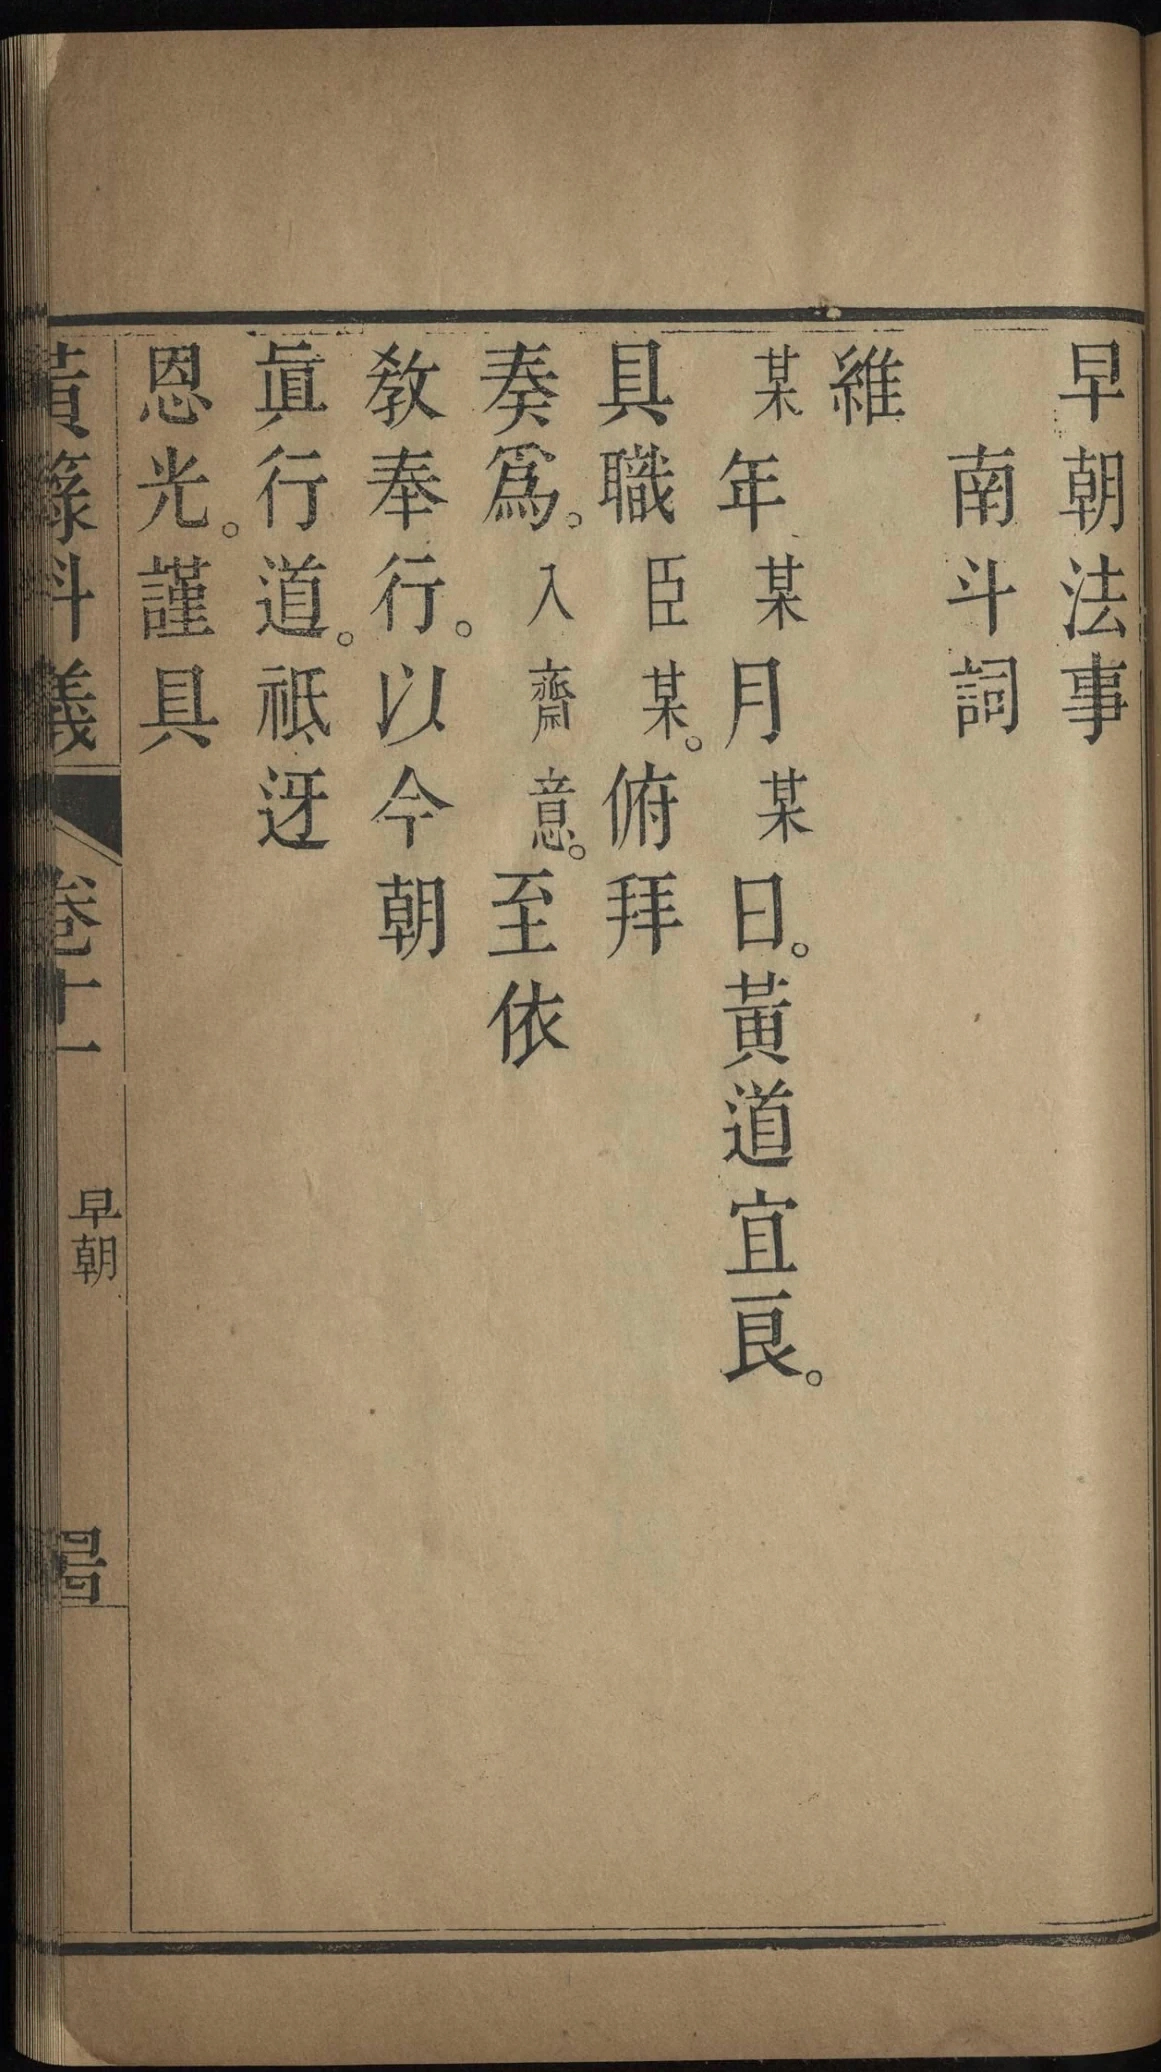 早朝法事
南斗詞
維
某年某月某日。黃道宜良。
具職臣某。俯拜
奏爲。入齋意。至依
敎奉行。以今朝
眞行道。祗迓
恩光。謹具
黃籙科儀
卷十一
早朝